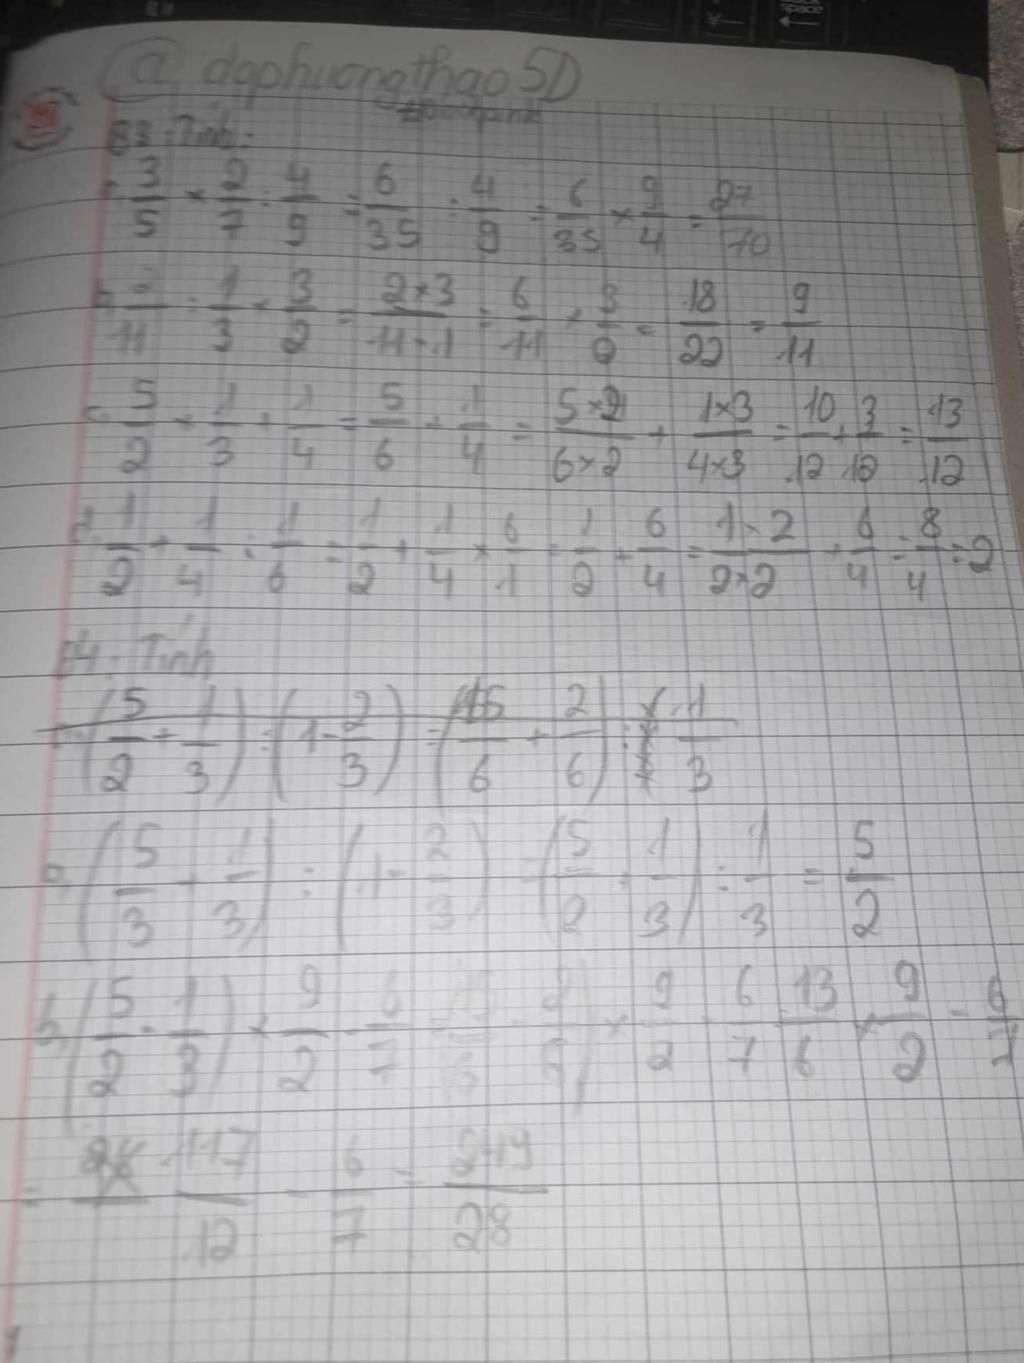 @ dgphuongthao5D
B3. Tính:
3/5 × 2/7 : 4/9 = 6/35 : 4/9 = 6/35 × 9/4 = 27/70
/11 : 1/3 × 3/2 = 2×3/11×1 = 6/11 × 3/2 = 18/22 = 9/11
5/2 × 1/3 + 1/4 = 5/6 + 1/4 = 5×2/6×2 + 1×3/4×3 = 10/12 + 3/12 = 13/12
1/2 + 1/4 : 1/6 = 1/2 + 1/4 × 6/1 = 1/2 + 6/4 = 1×2/2×2 + 6/4 = 8/4 = 2
B4. Tính
(5/2 + 1/3) : (1 - 2/3) = (15/6 + 2/6) : 1/3
(5/3 - 1/3) : (1 - 2/3) = (5/2 1/3) : 1/3 = 5/2
b, (5/2 - 1/3) × 9/2 - 6/7 = × 9/2 - 6/7 = 13/6 × 9/2 - 6/7
= 117/12 - 6/7 = 249/28